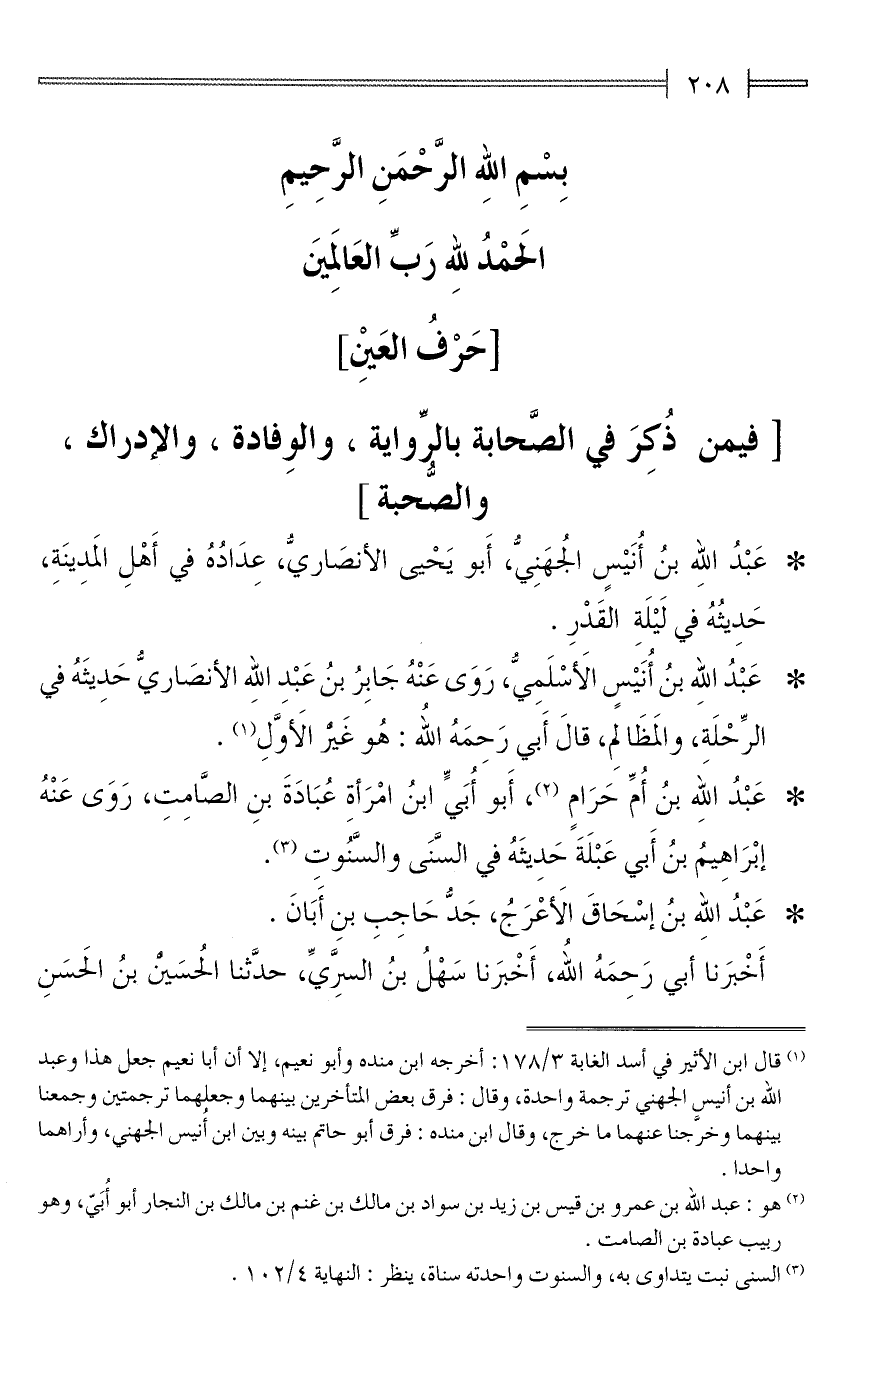 ٢٠٨
بِسْمِ اللهِ الرَّحْمَنِ الرَّحِيمِ
الحَمْدُ للهِ رَبِّ العَالَمِينَ
[حَرْفُ العَيْنِ]
[ فيمن ذُكِرَ في الصَّحابة بالرِّواية ، والوِفادة ، والإدراك ،
والصُّحبة ]
* عَبْدُ اللهِ بنُ أُنَيْسٍ الجُهَنِيُّ، أَبو يَحْيى الأنصَاريُّ، عِدَادُهُ في أَهْلِ المَدِينَةِ،
حَدِيثُهُ في لَيْلَةِ القَدْرِ .
* عَبْدُ اللهِ بنُ أُنَيْسٍ الأَسْلَمِيُّ، رَوَى عَنْهُ جَابِرُ بنُ عَبْدِ اللهِ الأنصَاريُّ حَدِيثَهُ في
الرِّحْلَةِ، والمَظَالمِ، قالَ أَبي رَحِمَهُ اللهُ : هُو غَيْرُ الأَوَّلِ(١) .
* عَبْدُ اللهِ بنُ أُمِّ حَرَامٍ (٢)، أَبو أُبَيٍّ ابنُ امْرَأةِ عُبَادَةَ بنِ الصَّامِتِ، رَوَى عَنْهُ
إبْرَاهِيمُ بنُ أَبي عَبْلَةَ حَدِيثَهُ في السَّنَى والسَّنُوتِ (٣).
* عَبْدُ اللهِ بنُ إسْحَاقَ الأَعْرَجُ، جَدُّ حَاجِبِ بنِ أَبَانَ .
أَخْبَرَنا أَبي رَحِمَهُ اللهُ، أَخْبَرَنا سَهْلُ بنُ السرِيِّ، حدَّثنا الحُسَيْنُ بنُ الحَسَنِ
(١) قال ابن الأثير في أسد الغابة ١٧٨/٣: أخرجه ابن منده وأبو نعيم، إلا أن أبا نعيم جعل هذا وعبد
الله بن أنيس الجهني ترجمة واحدة، وقال : فرق بعض المتأخرين بينهما وجعلهما ترجمتين وجمعنا
بينهما وخرَّجنا عنهما ما خرج، وقال ابن منده : فرق أبو حاتم بينه وبين ابن أُنيس الجهني، وأراهما
واحدا .
(٢) هو : عبد الله بن عمرو بن قيس بن زيد بن سواد بن مالك بن غنم بن مالك بن النجار أبو أُبَيّ، وهو
ربيب عبادة بن الصامت .
(٣) السنى نبت يتداوى به، والسنوت واحدته سناة، ينظر : النهاية ١٠٢/٤ .